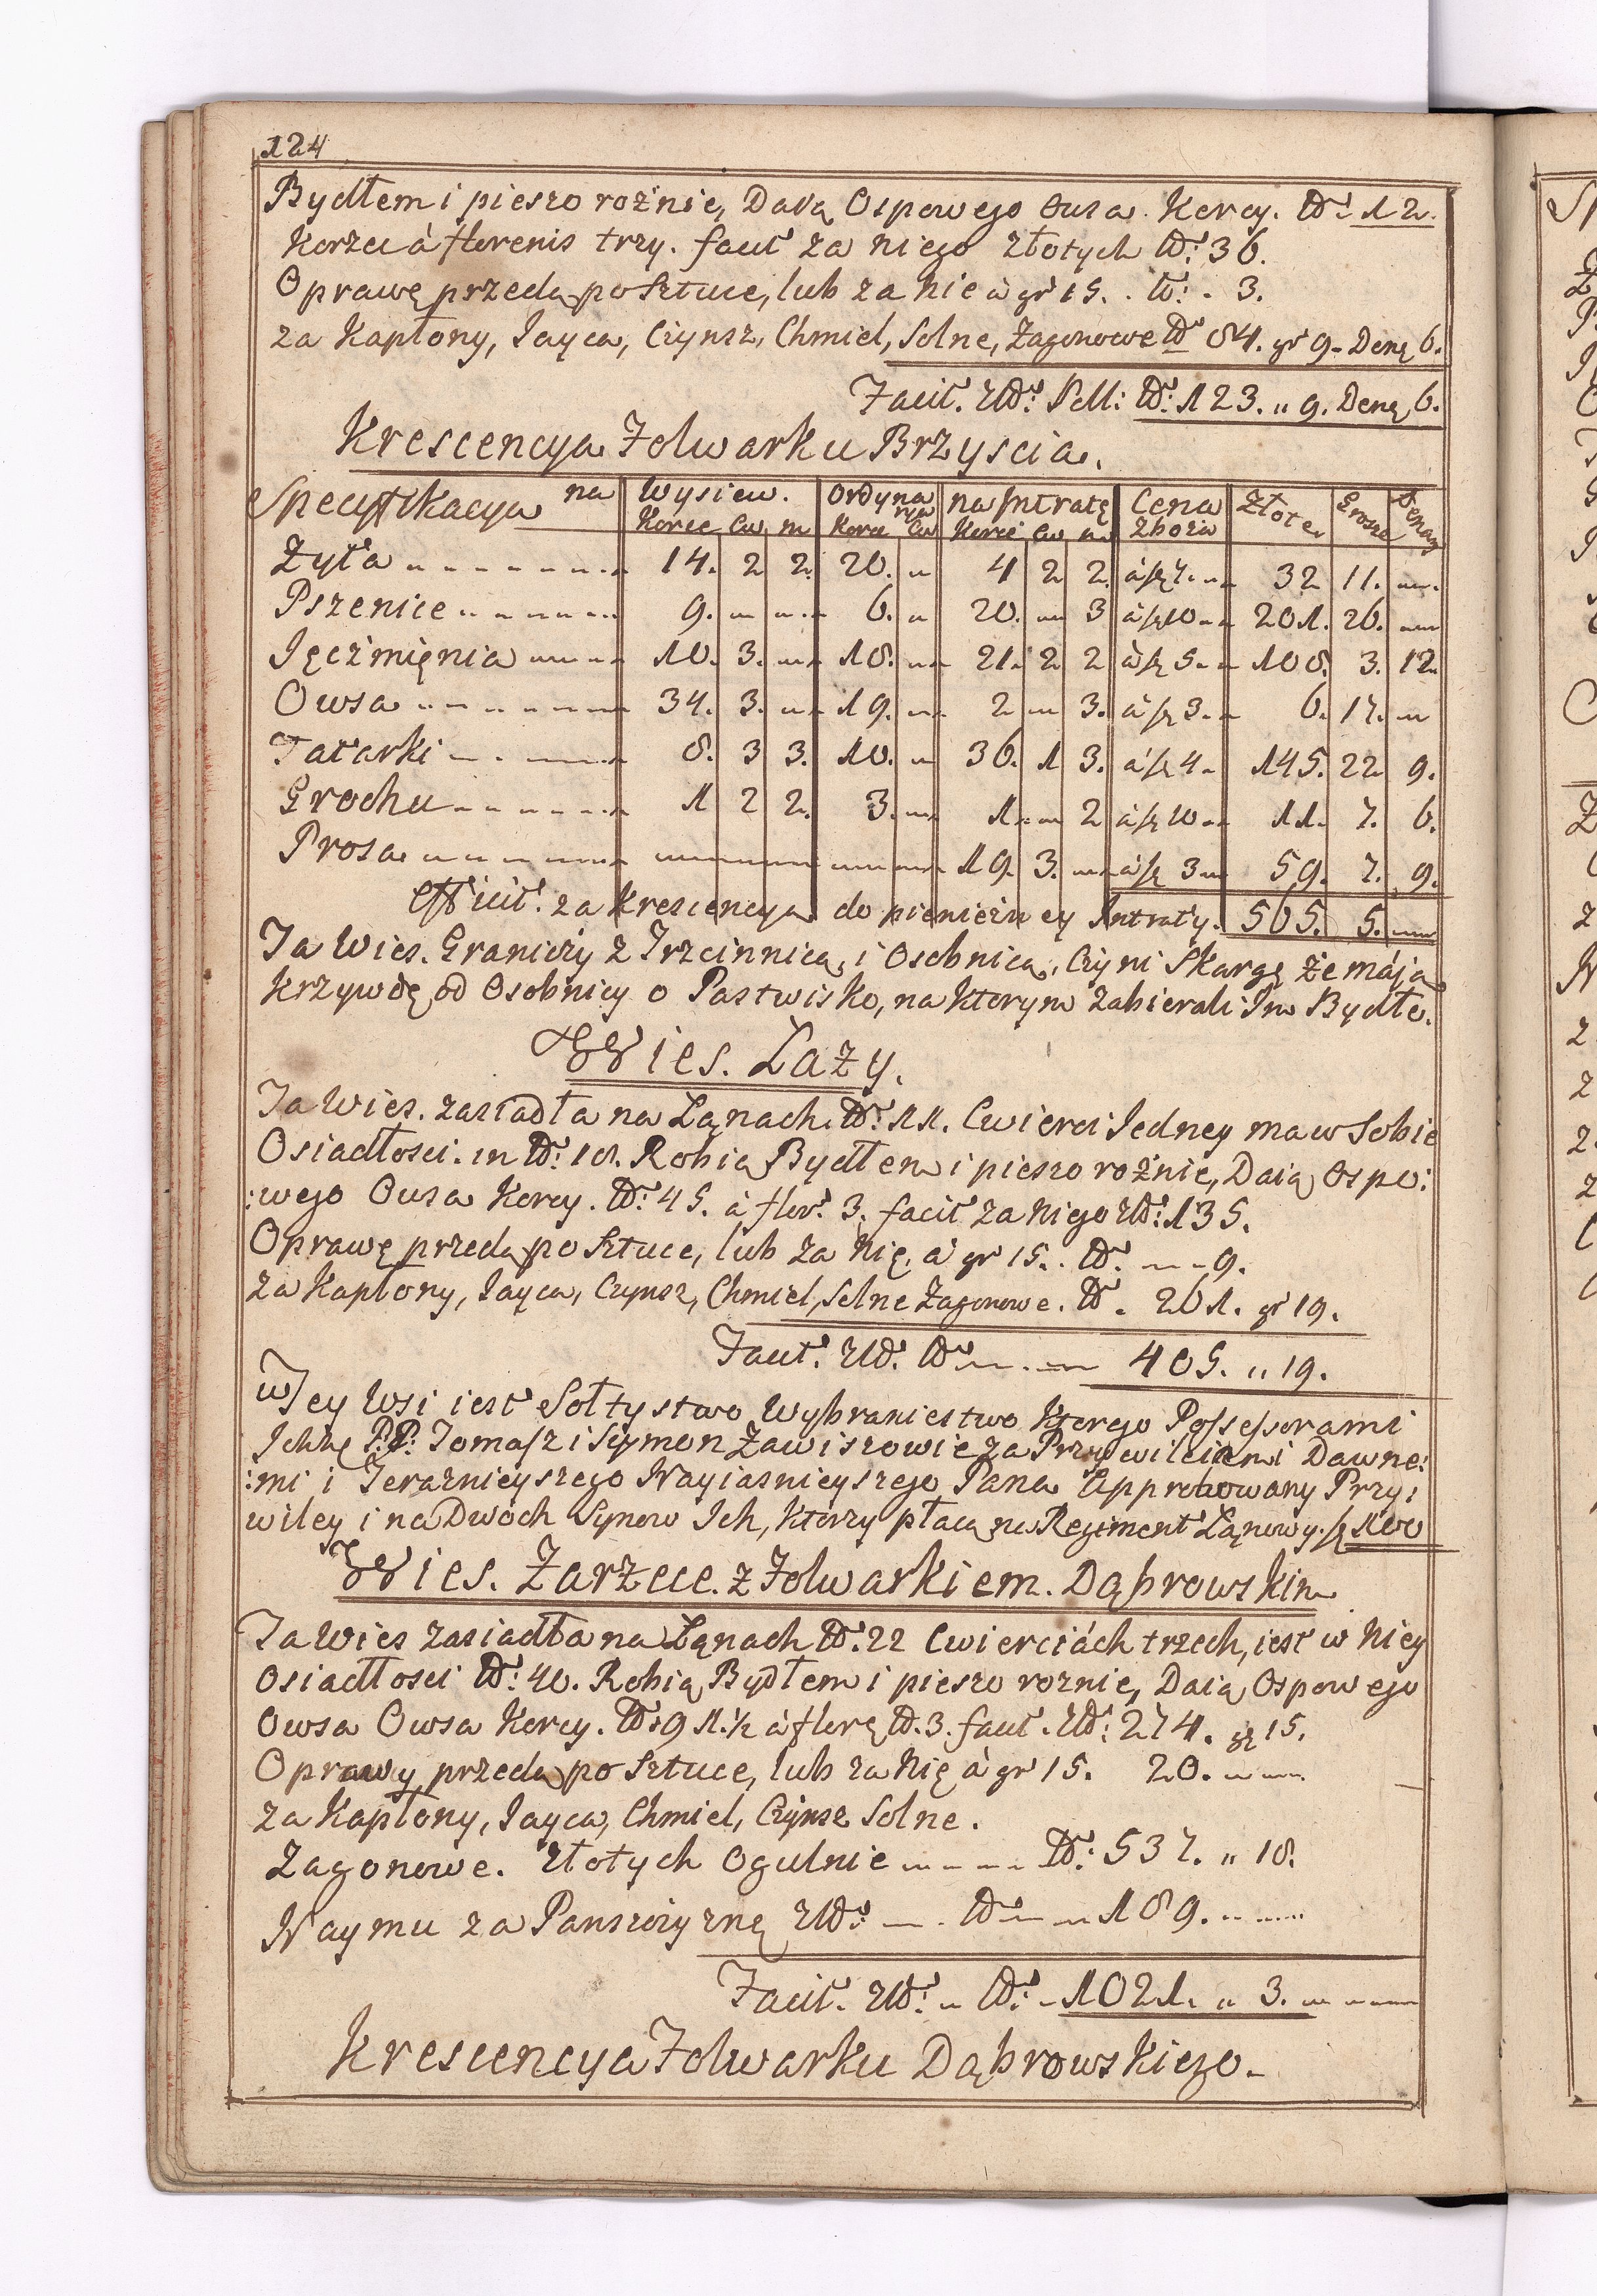 124
Bydłem i pieszo rożnie, Daią Ospowego Owsa. Korcy. No 12.
Korzec á florenis trzy. facit za niego złotych No: 36.
Oprawę przedą po Sztuce, lub za nie á gr 15. . No: . 3.
za Kapłony, Jayca, Czynsz, Chmiel, Solne, Zagonowe No 84. gr 9. Denę 6.
Facit. Zło: Poll: No: 123. „ 9. Denę 6.
Krescencya Folwarku Brzyscia.
Specyfikacya na Wysiew. Ordynarya na Intratę Cena Złote Grosze Denary
Korce Cw m Korce Cw Korce Cw m Zboża
Zyta 14. 2 2. 20. 4 2 2. á fl 7. 32 11.
Pszenice 9. 6. 20. 3 á fl 10 201. 26.
Jęczmięnia 10. 3. 18. 21. 2 2 á fl 5. 108. 3. 12.
Owsa 34. 3. 19. 2 3. á fl 3. 6. 17.
Tatarki 8. 3 3. 10. 36. 1 3. á fl 4. 145. 22 9.
Grochu 1 2 2. 3. 1. 2 á fl 10 11. 7. 6.
Prosa 19. 3. á fl 3 59. 7. 9.
Efficit. za Krescencya do pienieżney Intraty. 565. 5.
Ta Wies. Graniczy z Trzcinnicą, i Osobnicą, Czyni Skargę że maią
Krzywdę od Osobnicy o Pastwisko, na Ktorym zabierali Im Bydło.
Wies. Łazy.
Ta Wies. zasiadła na Łanach. No: 11. Cwierci Jedney ma w Sobie
Osiadłosci. in No: 18. Robią Bydłem i pieszo rożnie, Daią Ospo:
:wego Owsa Korcy. No: 45. á flor: 3. facit za Niego Zło: 135.
Oprawę przedą po Sztuce, lub za Nię, á gr 15. . No. 9.
za Kapłony, Jayca, Czynsz, Chmiel, Solne Zagonowe. No . 261. gr 19.
Facit. Zło. No 405. „ 19.
w Tey Wsi iest Sołtystwo Wybraniectwo Ktorego Possessorami
Ichmę P:P: Tomasz i Szymon Zawiszowie za Przywileiemi Dawne:
:mi i Teraznieyszego Nayiasnieyszego Pana Approbowany Przy:
wiley i na Dwoch Synow Ich, Ktorzy płacą na Regiment Łanowy. fl 100
Wies. Zarzece. z Folwarkiem. Dąbrowskim
Ta Wies zasiadła na Łanach No: 22 Cwierciách trzech, iest w Niey
Osiadłosci No: 40. Robią Bydłem i pieszo roznie, Daią Ospowego
Owsa Owsa Korcy. No: 91.½ á florę No. 3. facit. Zło: 274. gr 15.
Oprawy przedą po Sztuce, lub za Nię á gr 15. 20.
za Kapłony, Jayca, Chmiel, Czynsz Solne.
Zagonowe. Złotych Ogulnie No: 537. „ 18.
Naymu za Panszczyznę Zło: No 189.
Facit. Zło: No: 1021. „ 3.
Krescencya Folwarku Dąbrowskiego.